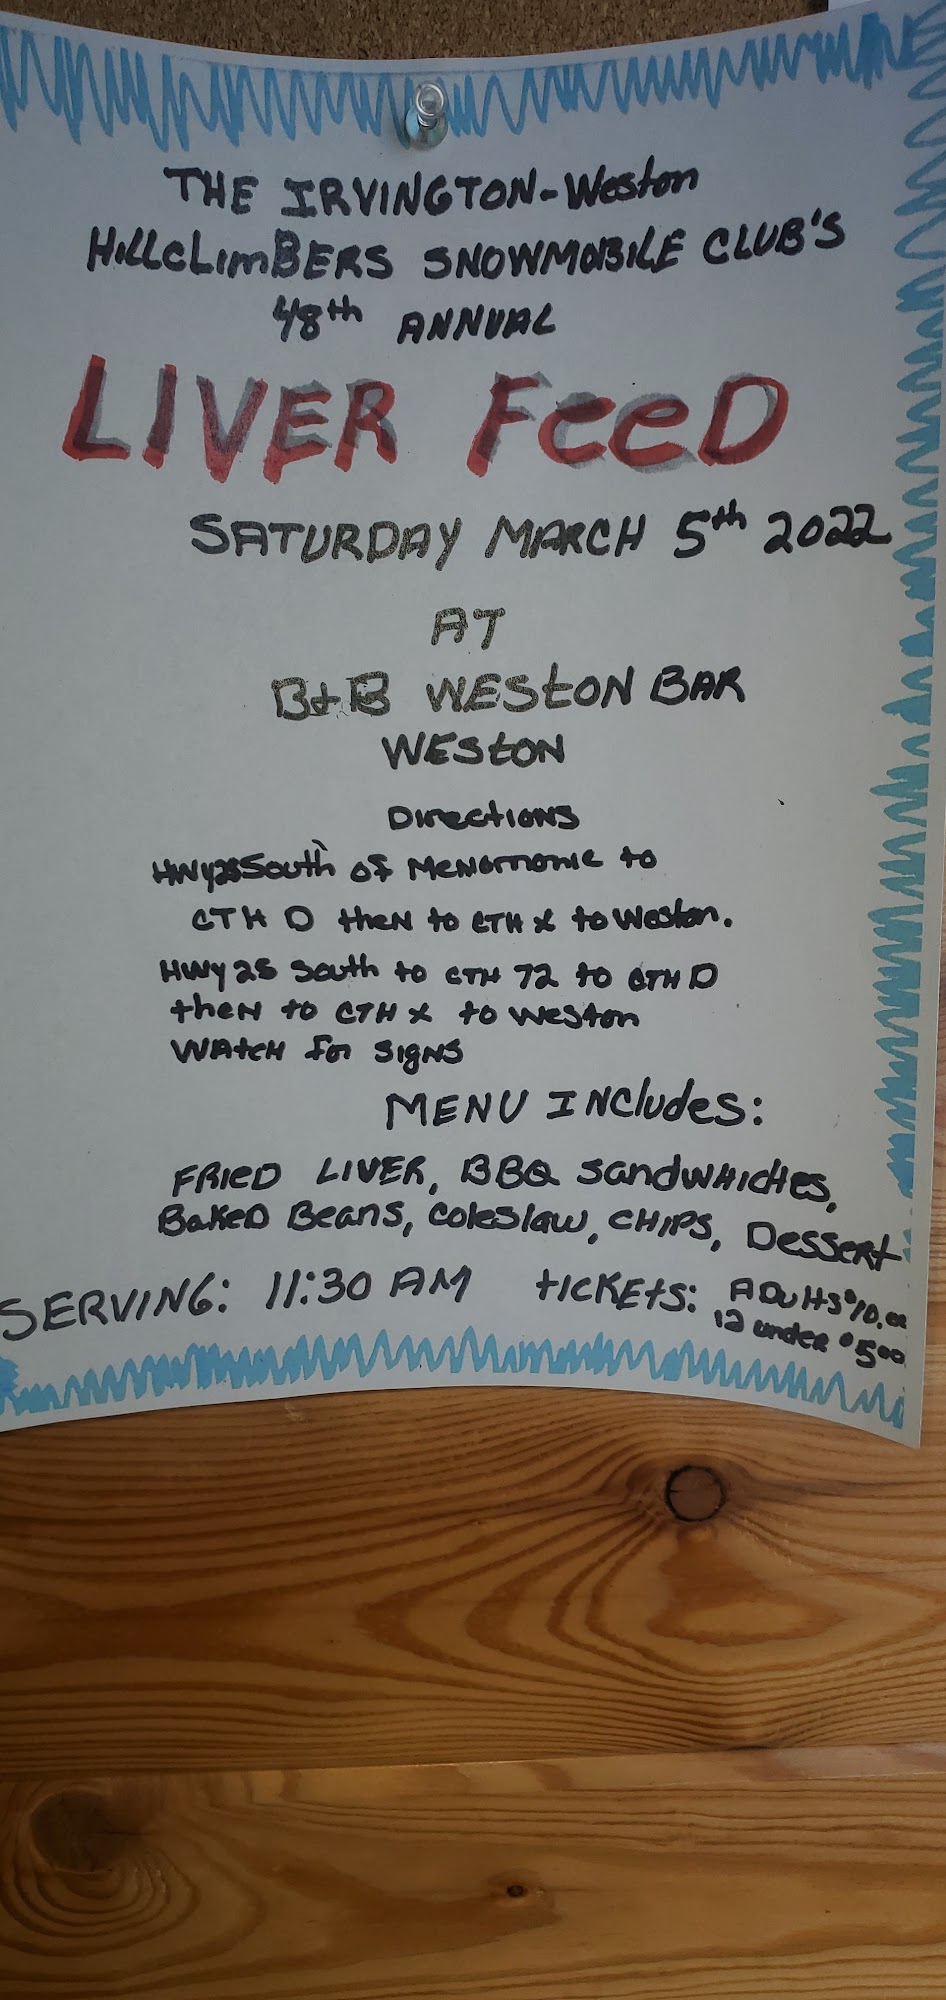 THE IRVINGTON-Weston
HillcLimBERS SNOWMOBILE CLUB'S
48th ANNUAL
LIVER FeeD
SATURDAY MARCH 5th 2022
AT
B+B WEStON BAR
WEStON
DirectIONS
HWY 25 South of Menomonie to
CTH D theN to CTH X to Weston.
HWY 25 South to CTH 72 to CTH D
theN to CTH X to Weston
WAtcH for SigNS
MENU INcludes:
FRieD LIVER, BBQ SandwHicHes,
BaKeD BeaNS, coleslaw, CHIPS, Dessert
SERVING: 11:30 AM tICKEtS: ADultS $10.ea
12 under $5.00